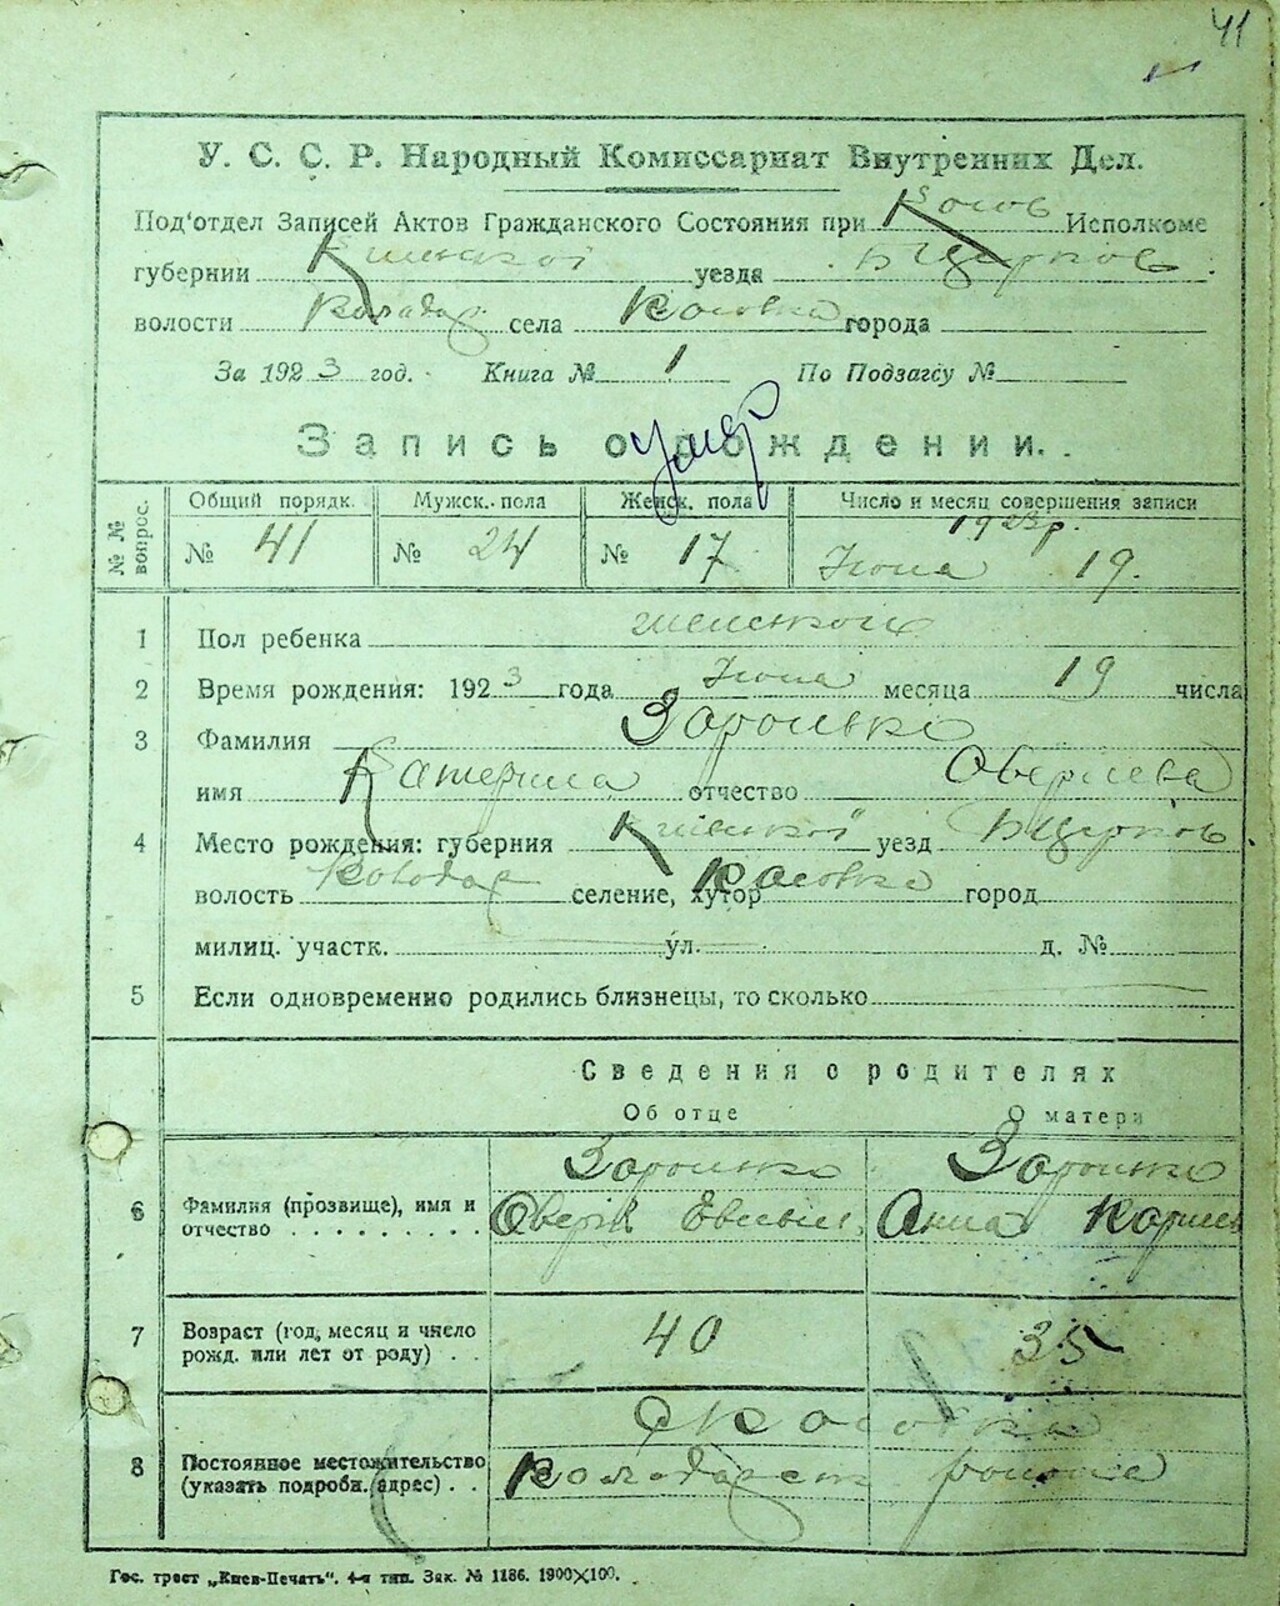 41
У. С. С. Р. Народный Комиссариат Внутренних Дел.
Под'отдел Записей Актов Гражданского Состояния при Косов Исполкоме
губернии уезда Б Церков
волости села Косовка города
За 1923 год. Книга № 1 По Подзагсу №
Запись о рождении.
Умер
№ № вопрос. Общий порядк. Мужск. пола Женск. пола Число и месяц совершения записи
1923 р.
№ 41 № 24 № 17 Июня 19.
1 Пол ребенка женской
2 Время рождения: 1923 года Июня месяца 19 числа
3 Фамилия
имя Катерина отчество
4 Место рождения: губерния уезд Б Церков
волость Володар селение, хутор Косовка город
милиц. участк. ул. д. №
5 Если одновременно родились близнецы, то сколько
Сведения о родителях
Об отце О матери
6 Фамилия (прозвище), имя и
отчество . . . . . . . . . Анна
7 Возраст (год, месяц и число 40 35
рожд. или лет от роду) . .
с Косовка
8 Постоянное местожительство
(указать подробн. адрес) . .
Гос. трест „Киев-Печать“. 4-я тип. Зак. № 1186. 1900×100.